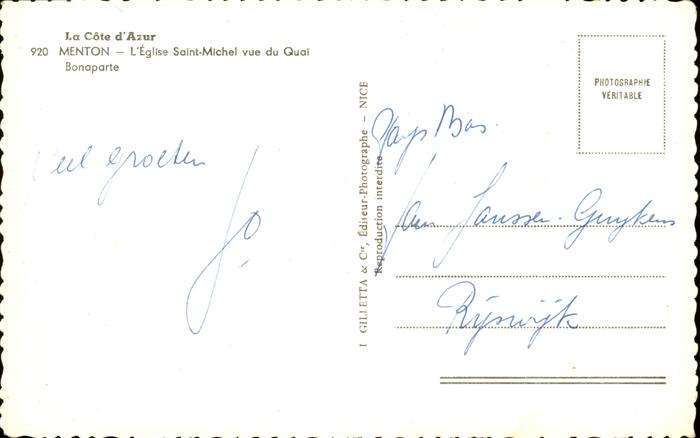 La Côte d'Azur
920 MENTON — L'Église Saint-Michel vue du Quai
Bonaparte
Veel groeten
Jo
1 GILLETTA & Cie, Éditeur-Photographe - NICE
Reproduction interdite
PHOTOGRAPHIE
VÉRITABLE
Pays Bas.
Jan Janssen-Gruykens
Rijswijk